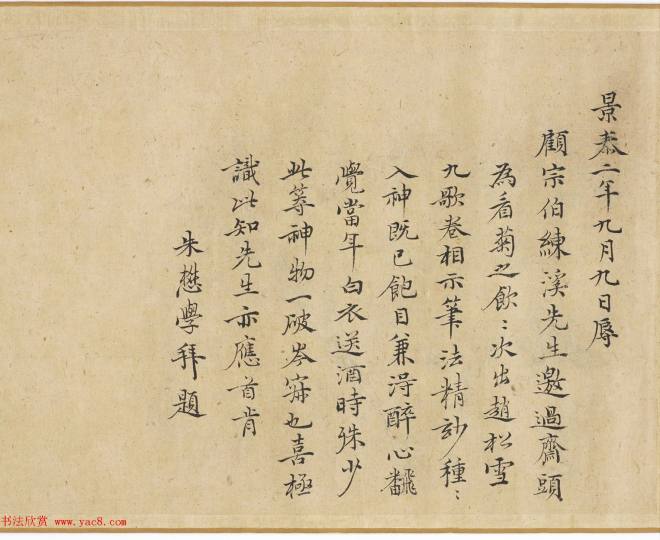 景泰二年九月九日辱
顧宗伯練溪先生邀過齋頭
為看菊之飲〻次出趙松雪
九歌卷相示筆法精玅種〻
入神既已飽目兼淂醉心飜
覺當年白衣送酒時殊少
此等神物一破岑寂也喜極
識此知先生亦應首肯
朱懋學拜題
书法欣赏 www.yac8.com